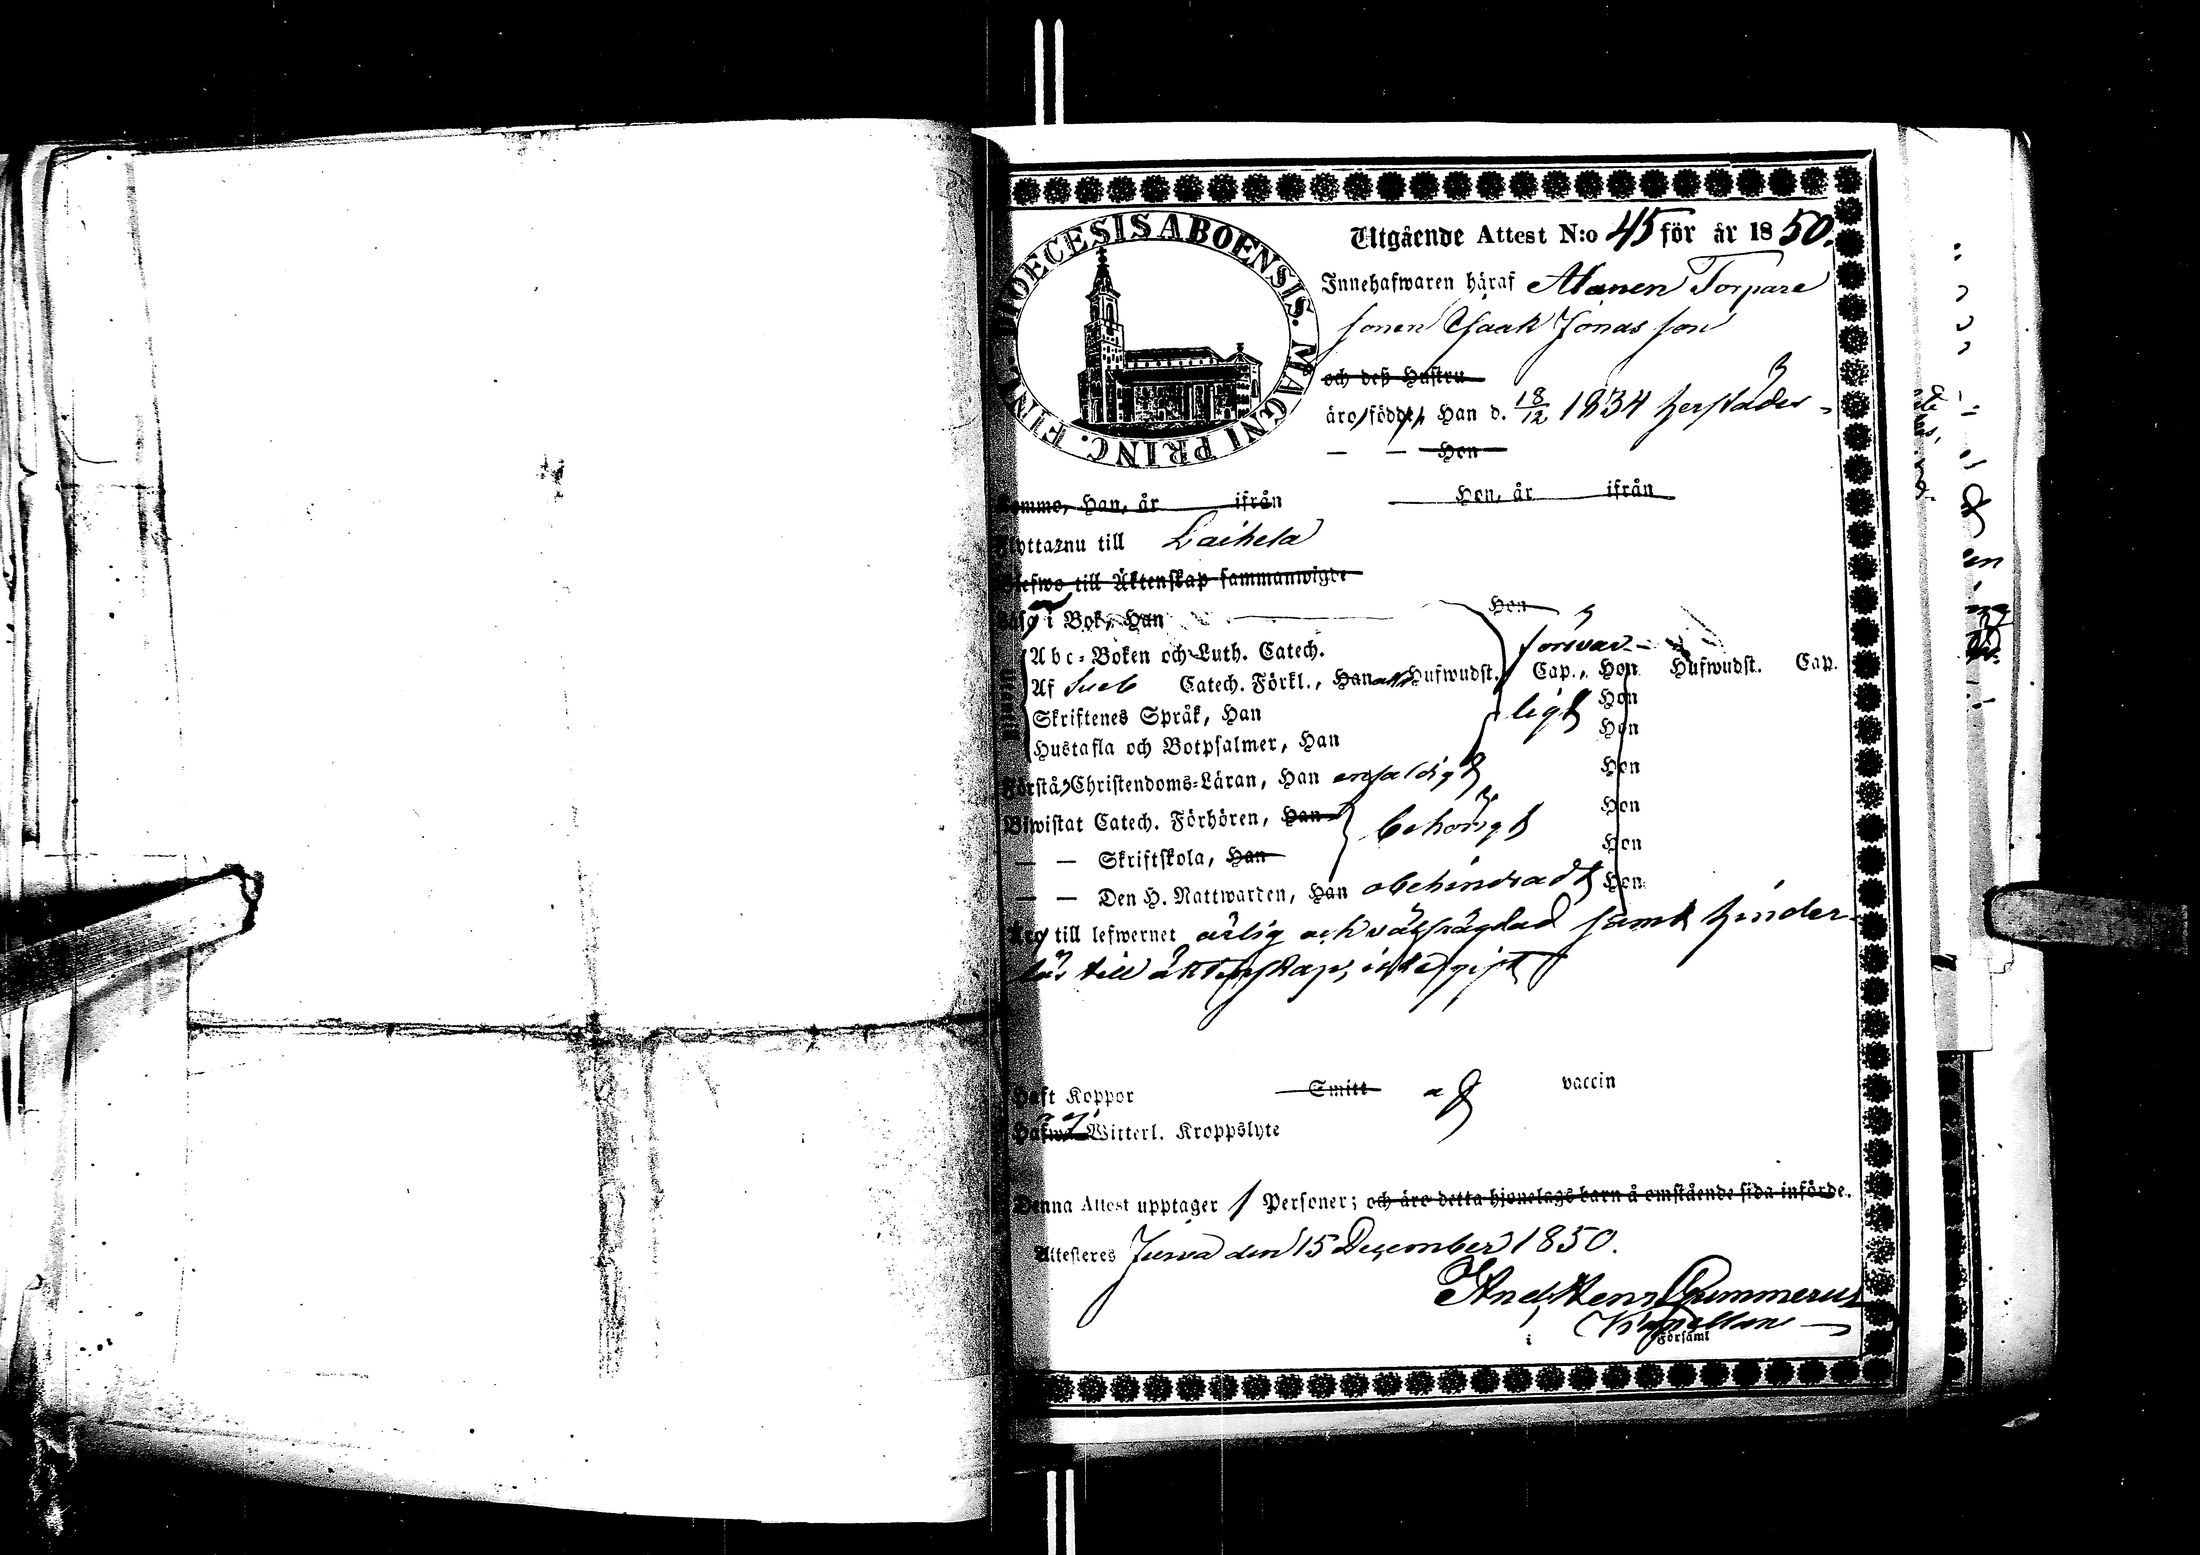 DIOECESIS ABOENSIS. MAGNI PRINC. FINL.
Utgående Attest N:o 45 för år 1850.
Innehafwaren häraf Alanen Torpare
sonen Isaak Jonas son
och deß Hustru
äro födde, Han d. 18/12 1834 härstädes
— — Hon
Komme, Han, år ifrån Hon, år ifrån
Flytta nu till Laihela
Blefwo till Äktenskap sammanwigde
Läsa i Bok, Han Hon
Abc-Boken och Luth. Catech. försvar-
Af Sveb Catech. Förkl., Han Hufwudst. Cap., Hon Hufwudst. Cap.
Skriftenes Språk, Han ligt Hon
Hustafla och Botpsalmer, Han Hon
Förstå Christendoms-Läran, Han enfaldigt Hon
Biwistat Catech. Förhören, Han behörigt Hon
— — Skriftskola, Han Hon
— — Den H. Nattwarden, Han obehindradt Hon
Äro till lefwernet ärlig och välfrägdad samt hinder-
lös till äktenskap, icke gift
Haft Koppor Smitt af vaccin
Hafwa ej Witterl. Kroppslyte
Denna Attest upptager 1 Personer; och äro detta hjonelags barn å omstående sida införde.
Attesteres Jurva den 15 December 1850.
And. Henr. Gummerus
Kapellan
i Församl